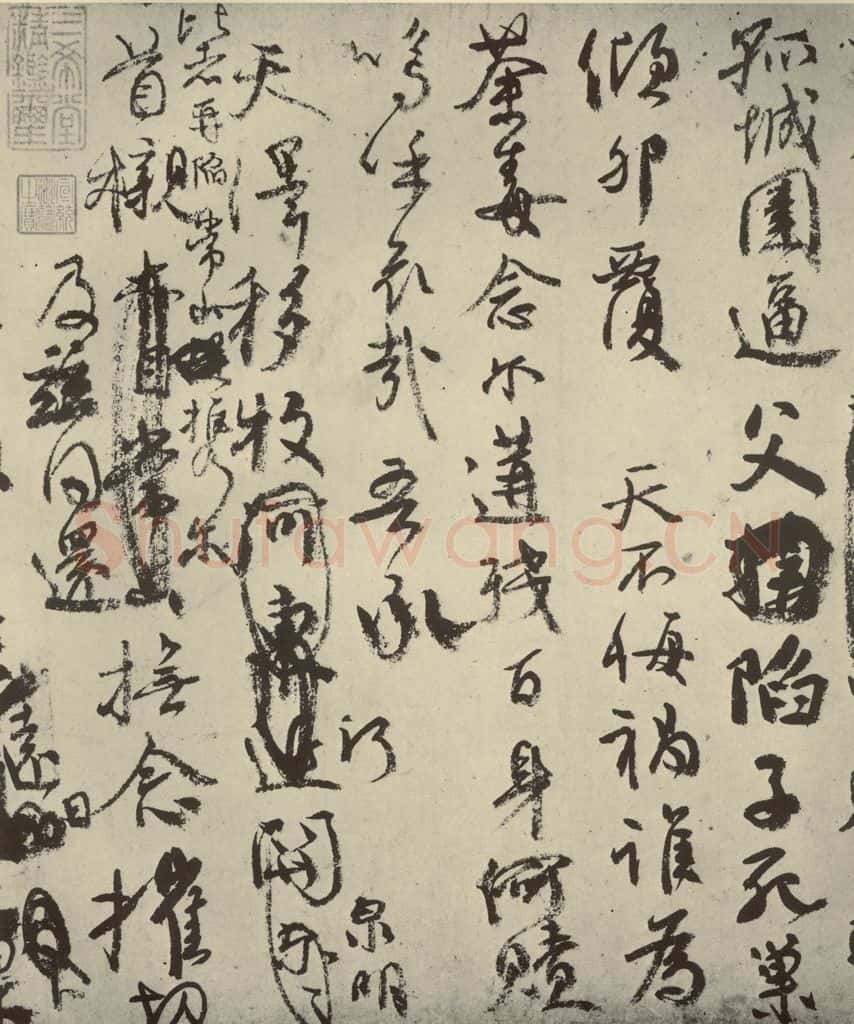 孤城圍逼父陷子死巢
傾卵覆 天不悔禍誰為
荼毒念尔遘殘百身何贖
嗚呼哀哉吾承 泉明
天澤移牧河關
比者再陷常山携尔
首櫬亦自常山撫念摧切
及茲同還
遠日
三希堂
精鑑璽
Shufawang.CN